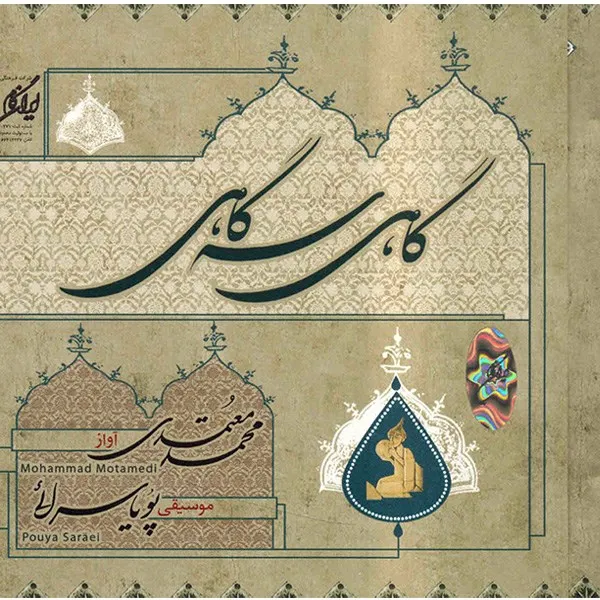 شرکت فرهنگی
ایرانگام
گاهی سه گاهی
آواز محمد معتمدی
Mohammad Motamedi
موسیقی پویا سرائی
Pouya Saraei